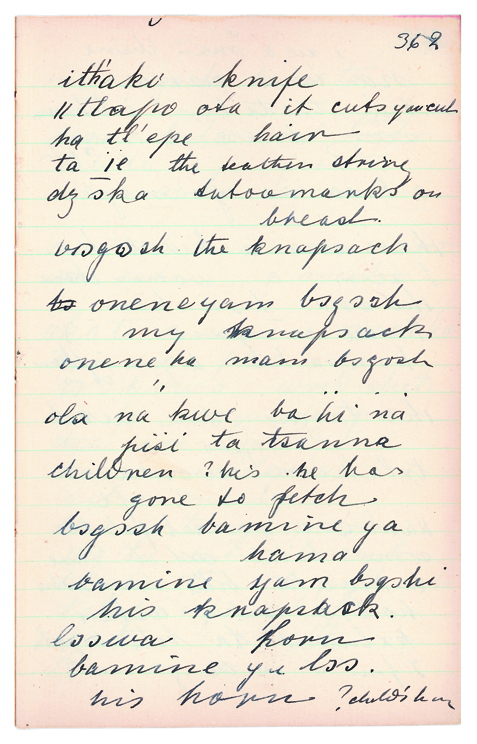 362
ithako knife
iitlapo ota it cuts you cut
ha tl'epe hair
ta ie the leathern string
dz ska tatoo marks on
breast.
bɔgɔsh the knapsack
onene yam bsgszh
my knapsack
onene ha mam bsgosh
ola na kwe ba hi na
pisi ta tsanna
children ? his he has
gone to fetch
bsgszh bamine ya
hama
bamine yam bsgshi
his knapsack.
lsswa horn
bamine ya lss.
his horn ? child's horn